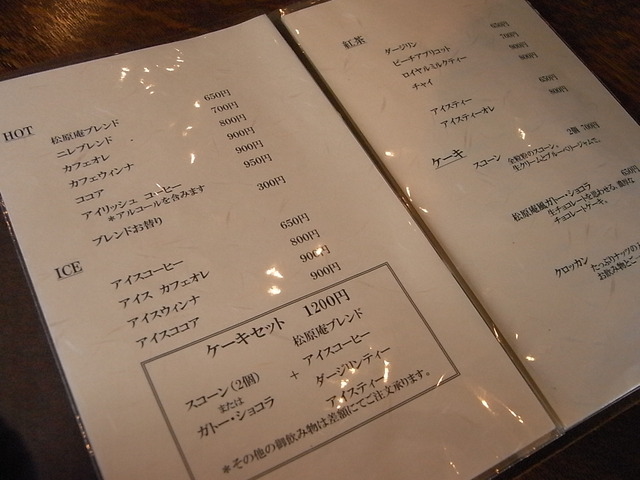 HOT
松原庵ブレンド 650円
ニレブレンド 700円
カフェオレ 800円
カフェウィンナ 900円
ココア 900円
アイリッシュ コーヒー 950円
*アルコールを含みます
ブレンドお替り 300円
ICE
アイスコーヒー 650円
アイス カフェオレ 800円
アイスウィンナ 900円
アイスココア 900円
ケーキセット 1200円
スコーン(2個)
または
ガトー・ショコラ
+
松原庵ブレンド
アイスコーヒー
ダージリンティー
アイスティー
*その他の御飲み物は差額にてご注文承ります。
紅茶
ダージリン 650円
ピーチアプリコット 700円
ロイヤルミルクティー 900円
チャイ 900円
アイスティー 650円
アイスティーオレ 800円
ケーキ
スコーン 2個 700円
全粒粉のスコーン。
生クリームとブルーベリージャムで。
松原庵風ガトー・ショコラ 650円
生チョコレートを思わせる、濃厚な
チョコレートケーキ。
クロッカン
たっぷりナッツの
お飲み物とご